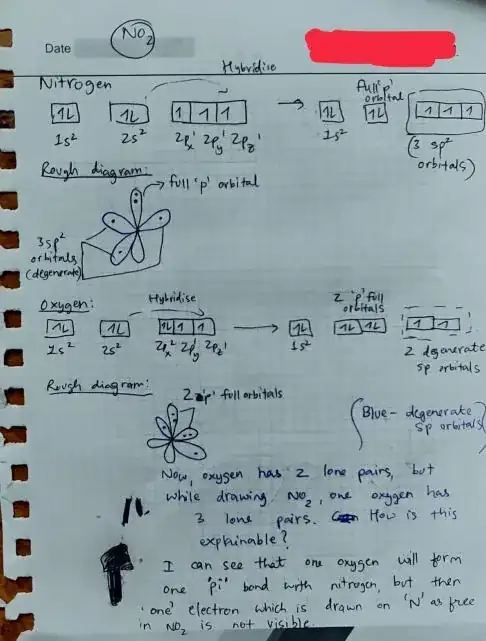 Date
NO2
Hybridise
Nitrogen
full 'p' orbital
1L 1L 1 1 1 → 1L 1L 1 1 1
1s² 2s² 2px¹ 2py¹ 2pz¹ 1s² (3 sp² orbitals)
Rough diagram:
→ full 'p' orbital
3sp²
orbitals
(degenerate)
Oxygen:
Hybridise
2 'p' full
orbitals
1L 1L 1L 1 1 → 1L 1L 1L 1 1
1s² 2s² 2px² 2py¹ 2pz¹ 1s² 2 degenerate
sp orbitals
Rough diagram:
2 'p' full orbitals
(Blue - degenerate
sp orbitals)
Now, oxygen has 2 lone pairs, but
while drawing NO2, one oxygen has
3 lone pairs. How is this
explainable?
I can see that one oxygen will form
one 'pi' bond with nitrogen, but then
'one' electron which is drawn on 'N' as free
in NO2 is not visible.